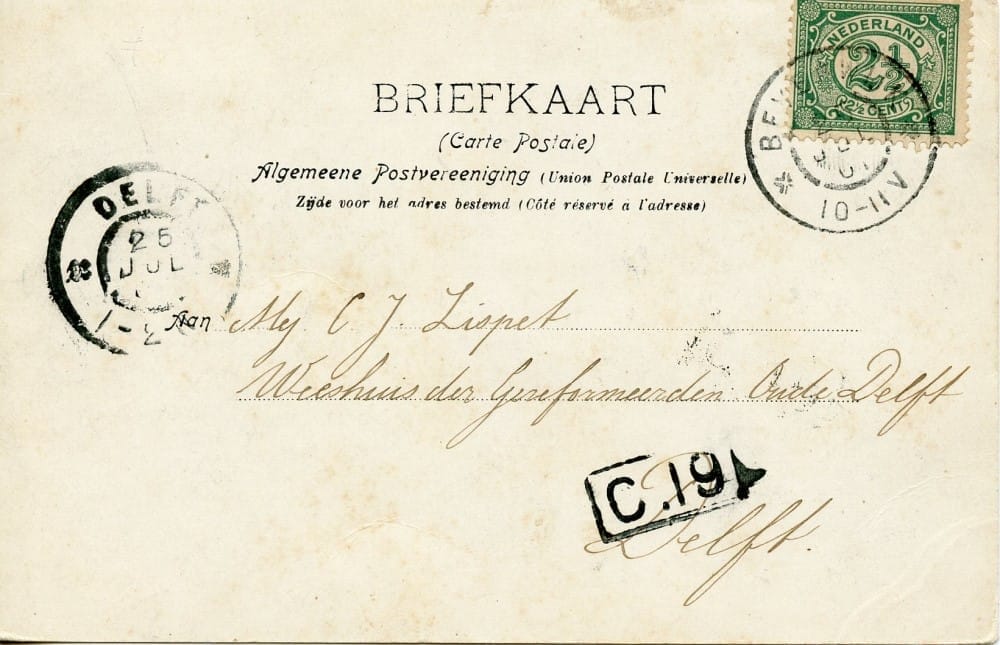 NEDERLAND
2½
2½ CENT
10-11V
BRIEFKAART
(Carte Postale)
Algemeene Postvereeniging (Union Postale Universelle)
Zijde voor het adres bestemd (Côté réservé à l'adresse)
DELFT
25
JUL
Aan Mej C J. Lispet
Weeshuis der Gereformeerden Oude Delft
C.19
Delft.